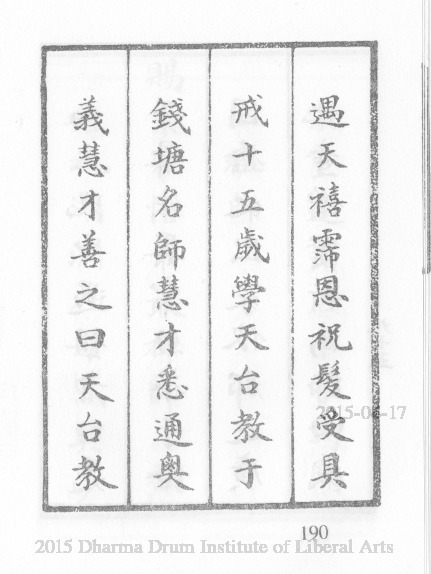 遇天禧霈恩祝髮受具
戒十五歲學天台教于
錢塘名師慧才悉通奧
義慧才善之曰天台教
190
2015 Dharma Drum Institute of Liberal Arts